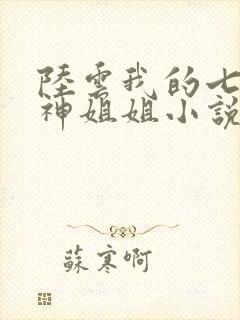 陸雲我的七
神姐姐小說
蘇寒啊